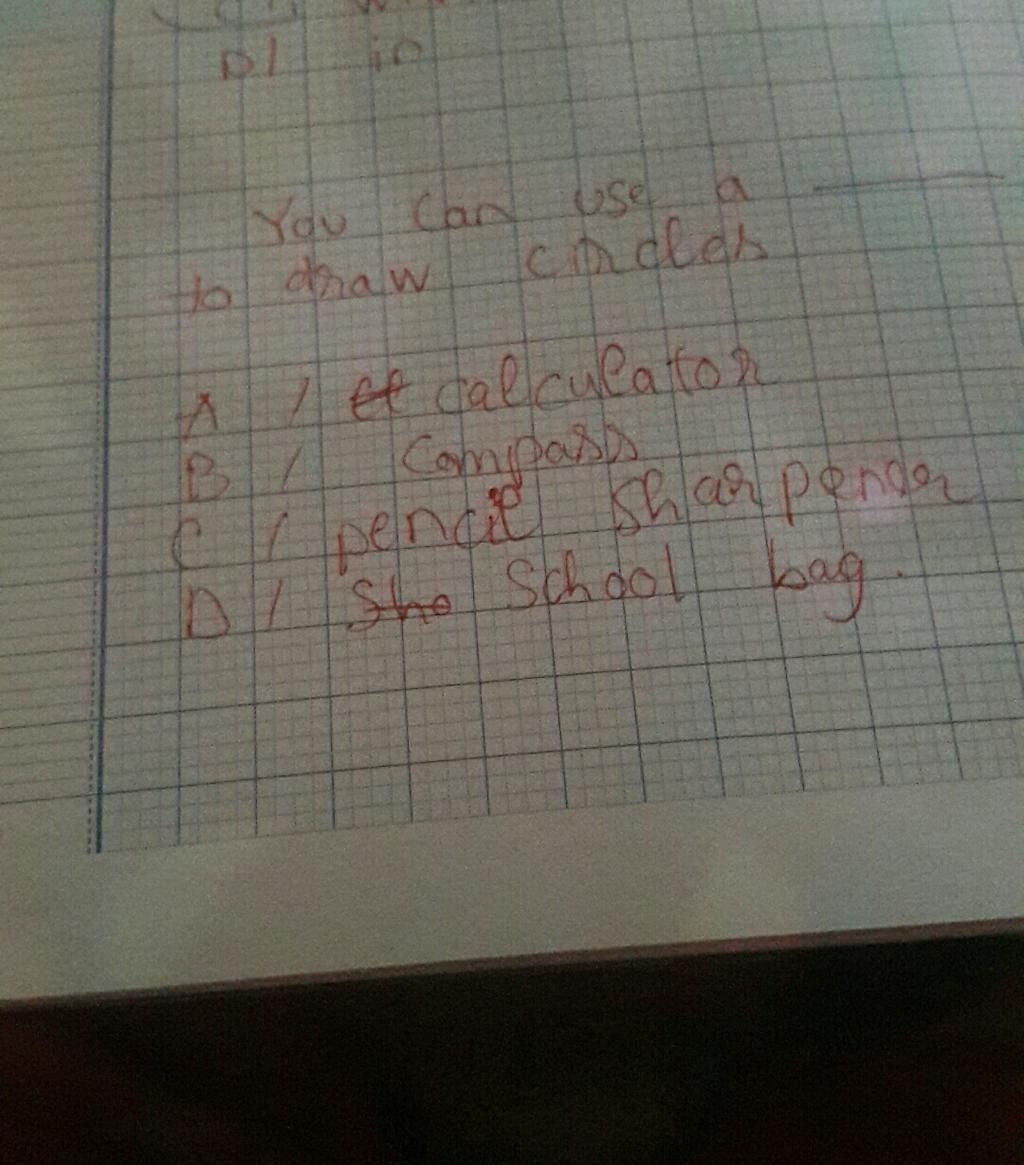 D/ in
You can use a ______
to draw circles
A / calculator
B / compass
C / pencil sharpener
D / School bag.